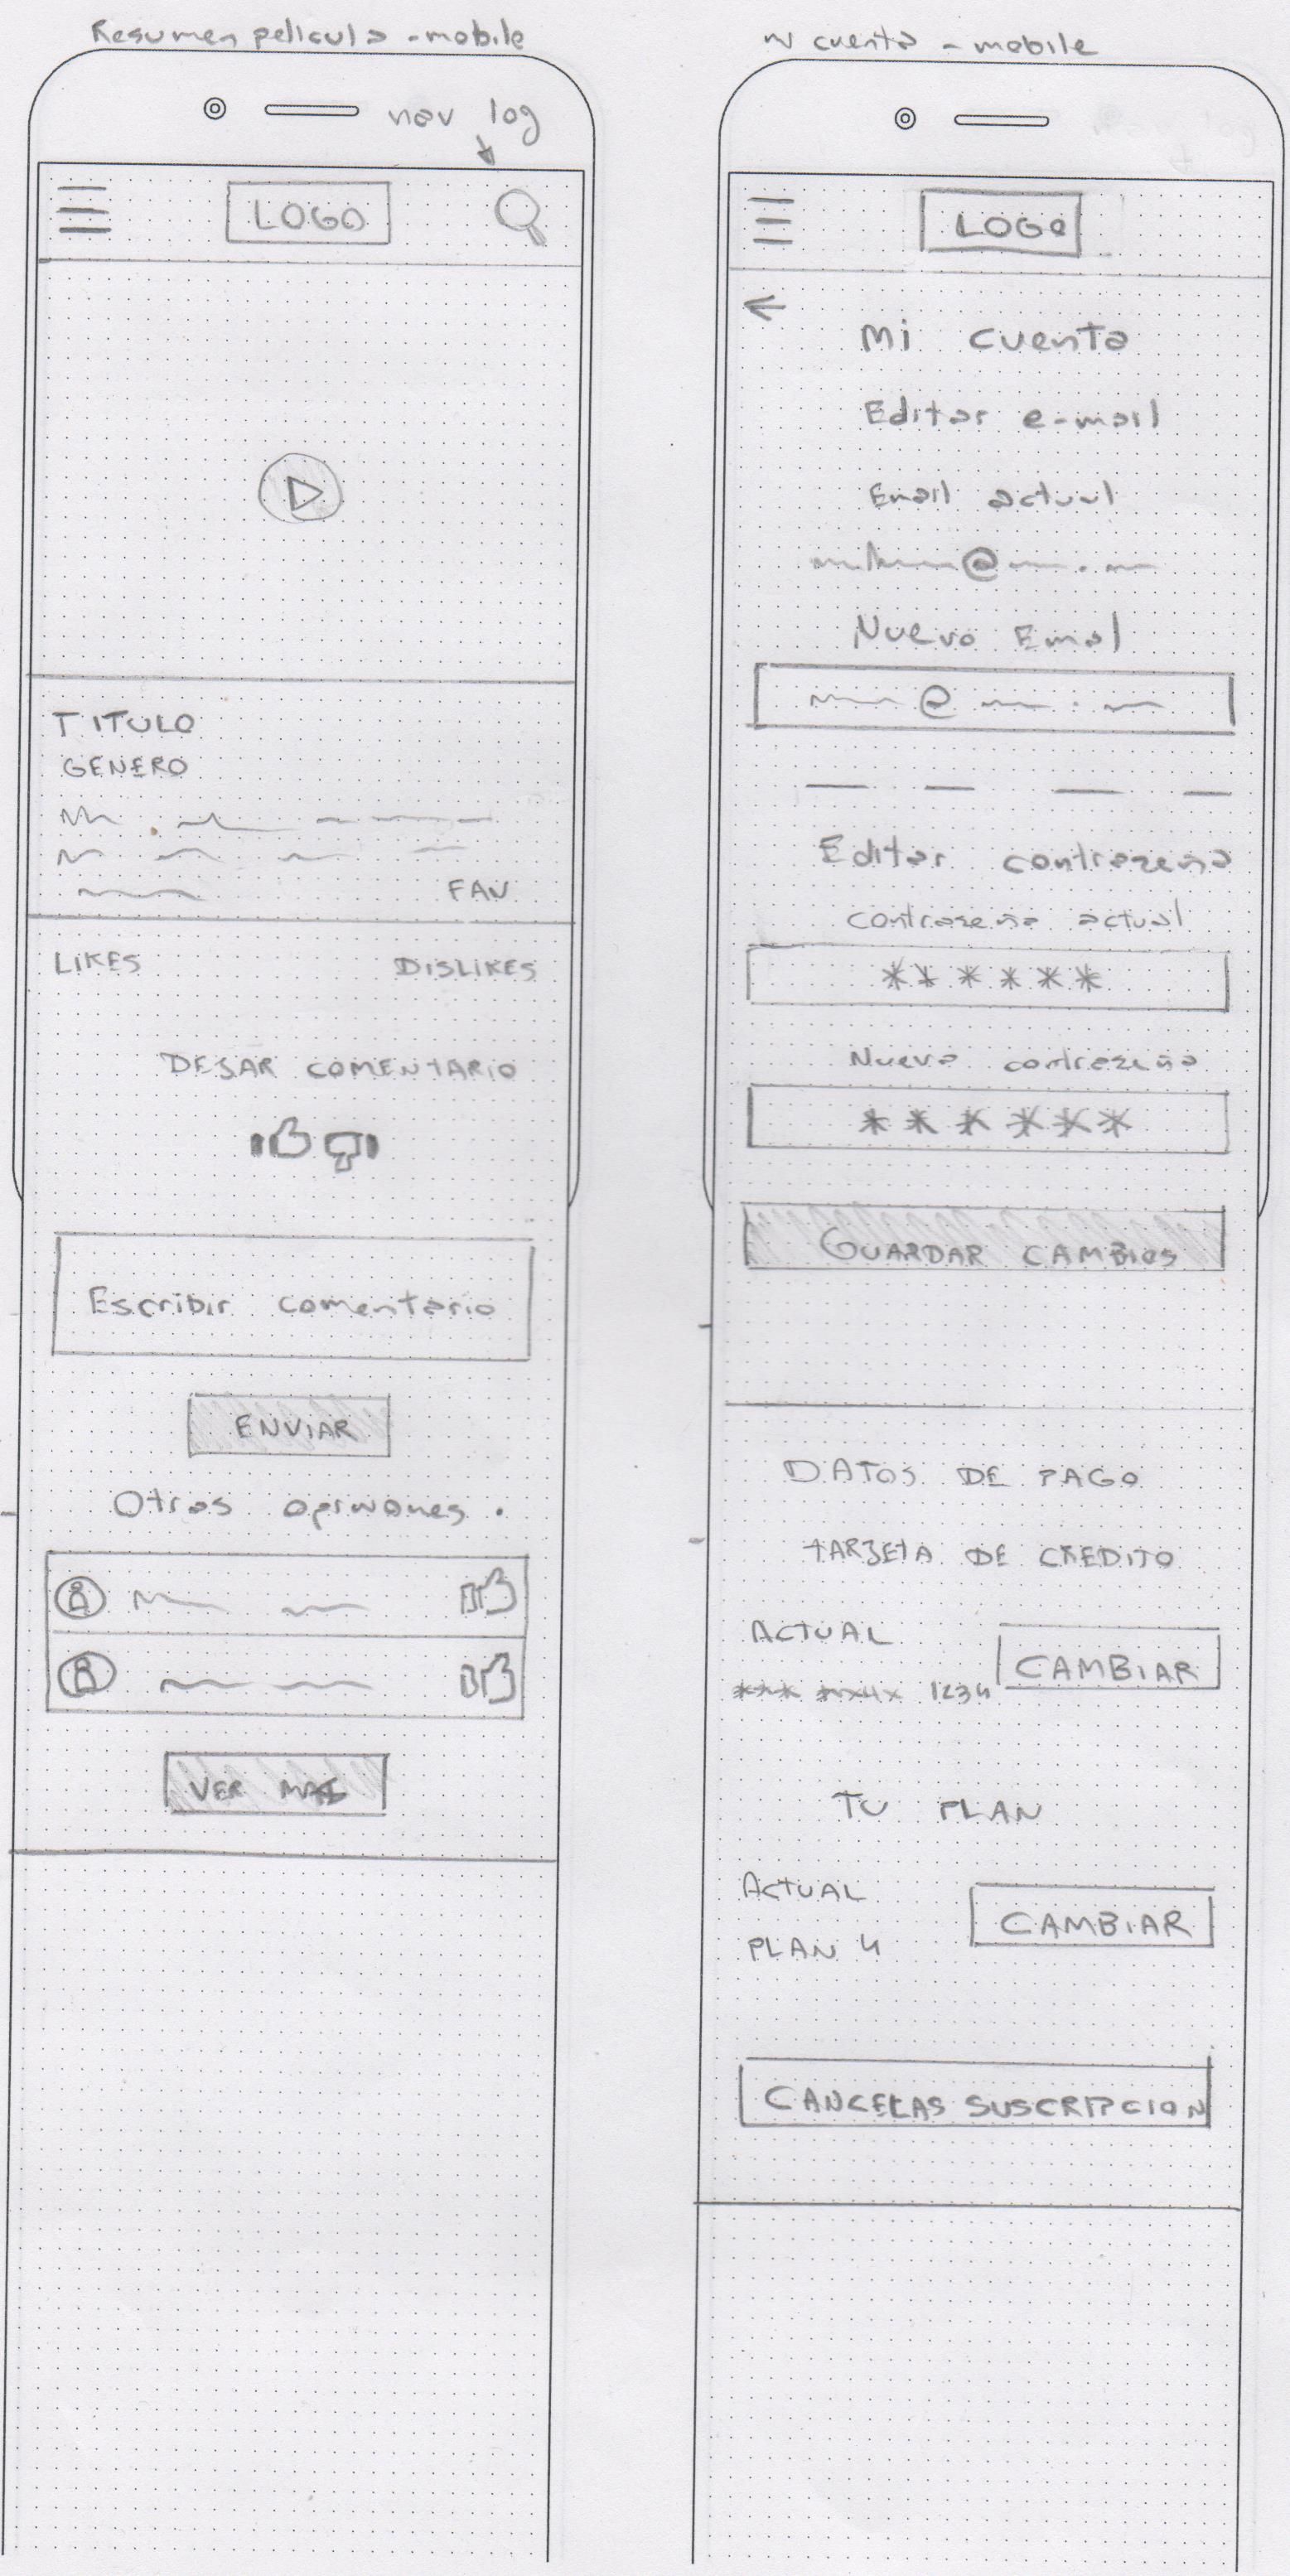 Resumen pelicula - mobile
nav log
LOGO
TITULO
GENERO
FAV
LIKES DISLIKES
DEJAR COMENTARIO
Escribir comentario
ENVIAR
Otras opiniones.
VER MAS
mi cuenta - mobile
LOGO
Mi cuenta
Editar e-mail
Email actual
@
Nuevo Email
@
Editar contraseña
contraseña actual
******
Nueva contraseña
******
GUARDAR CAMBIOS
DATOS DE PAGO
TARJETA DE CREDITO
ACTUAL CAMBIAR
*** **** 1234
TU PLAN
ACTUAL
CAMBIAR
PLAN 4
CANCELAS SUSCRIPCION